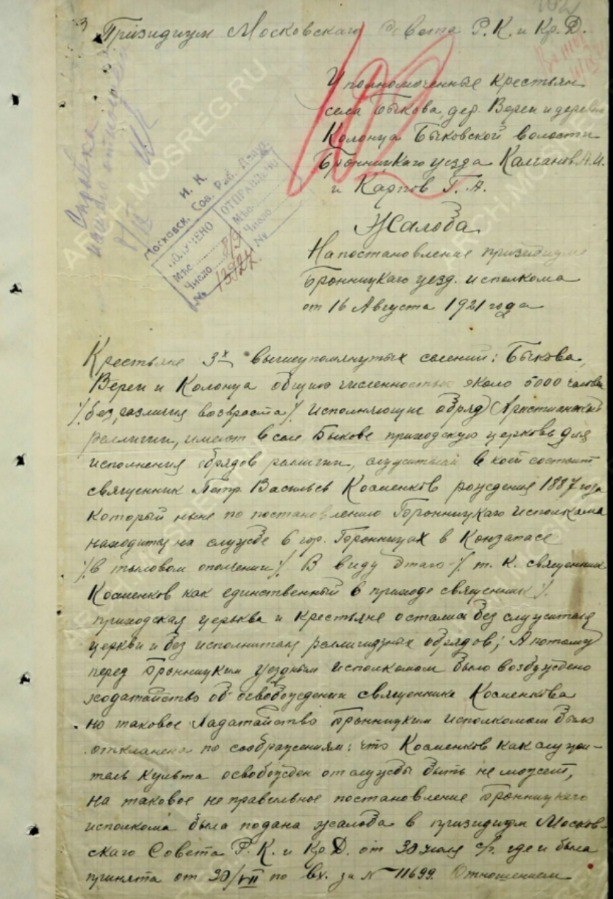 Призидиум Московскаго Совета Р.К. и Кр.Д.
Уполномоченные Крестьян
села Быкова, дер. Вереи и деревни
Колонца Быковской волости
Бронницкаго уезда Калганов А.И.
и Карпов Г.А.
Жалоба
На постановление призидиума
Бронницкаго уезд. исполкома
от 16 Августа 1921 года
Н. К.
Московск. Сов. Раб.
ПОЛУЧЕНО ОТПРАВЛЕНО
Мес. Мес.
Число Число
№ 13724 №
Крестьяне 3х вышеупомянутых селений: Быкова,
Вереи и Колонца общию численностью около 5000 человек
/без различия возроста/. Исполняющие обряд Христианской
религии, имеют в селе Быкове приходскую церковь для
исполнения обрядов религии, служителем в коей состоит
священник Петр Васильев Косменков рождения 1887 года
который ныне по постановлению Бронницкаго Исполкома
находится на службе в гор. Бронницах в Конзапасе
/в тыловом ополчении/. В виду этаго /т.к. священник
Косменков как единственный в приходе священник/.
приходская церьква и крестьяне остались без служителя
церькви и без исполнителя религиозных обрядов; А потому
перед Бронницким Уездным исполкомом было возбуждено
ходатайство об освобождении священника Косменкова
но таковое Хадатайство Бронницким Исполкомом было
откланено по соображениям: что Косменков как служи-
тель культа освобожден от службы быть не может,
на таковое не правильное постановление Бронницкаго
исполкома была подана жалоба в призидиум Москов-
скаго Совета Р.К. и Кр.Д. от 20 июля с/г. где и была
принята от 20/VII по вх. за № 11699. Отношением
ARCH-MOSREG.RU